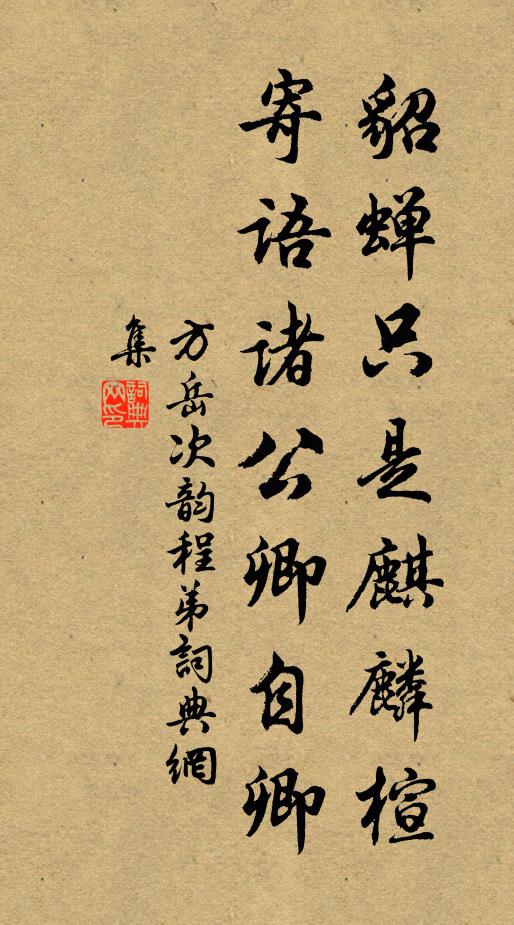 貂蝉只是麒麟楦
寄语诸公卿自卿
方岳次韵程弟詞典網
集
詞典網印